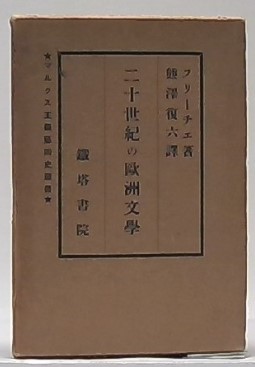 フリーチェ著
熊澤復六譯
二十世紀の歐洲文學
鐵塔書院
★マルクス主義藝術史叢書★